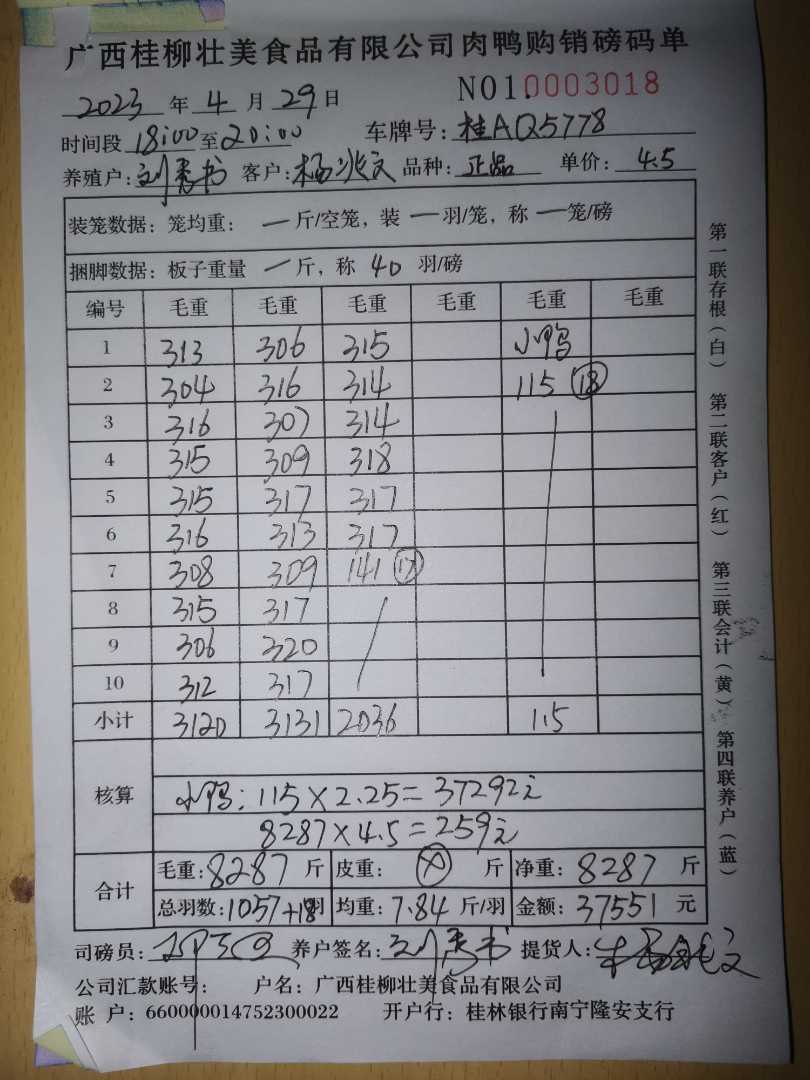 广西桂柳壮美食品有限公司肉鸭购销磅码单
2023年4月29日 NO1.0003018
时间段18:00至20:00 车牌号:桂AQ5778
养殖户:刘秀书 客户:杨兆文 品种:正品 单价:4.5
装笼数据:笼均重:一斤/空笼,装一羽/笼,称一笼/磅
捆脚数据:板子重量一斤,称40羽/磅
编号 毛重 毛重 毛重 毛重 毛重 毛重
1 313 306 315 小鸭
2 304 316 314 115 (18)
3 316 307 314
4 315 309 318
5 315 317 317
6 316 313 317
7 308 309 141 (17)
8 315 317
9 306 320
10 312 317
小计 3120 3131 2036 115
核算
小鸭:115×2.25=37292元
8287×4.5=259元
合计 毛重:8287斤 皮重: 斤 净重:8287斤
总羽数:1057+18羽 均重:7.84斤/羽 金额:37551元
司磅员: 养户签名:刘秀书 提货人:杨兆文
公司汇款账号: 户名:广西桂柳壮美食品有限公司
账 户:660000014752300022 开户行:桂林银行南宁隆安支行
第一联存根(白) 第二联客户(红) 第三联会计(黄) 第四联养户(蓝)